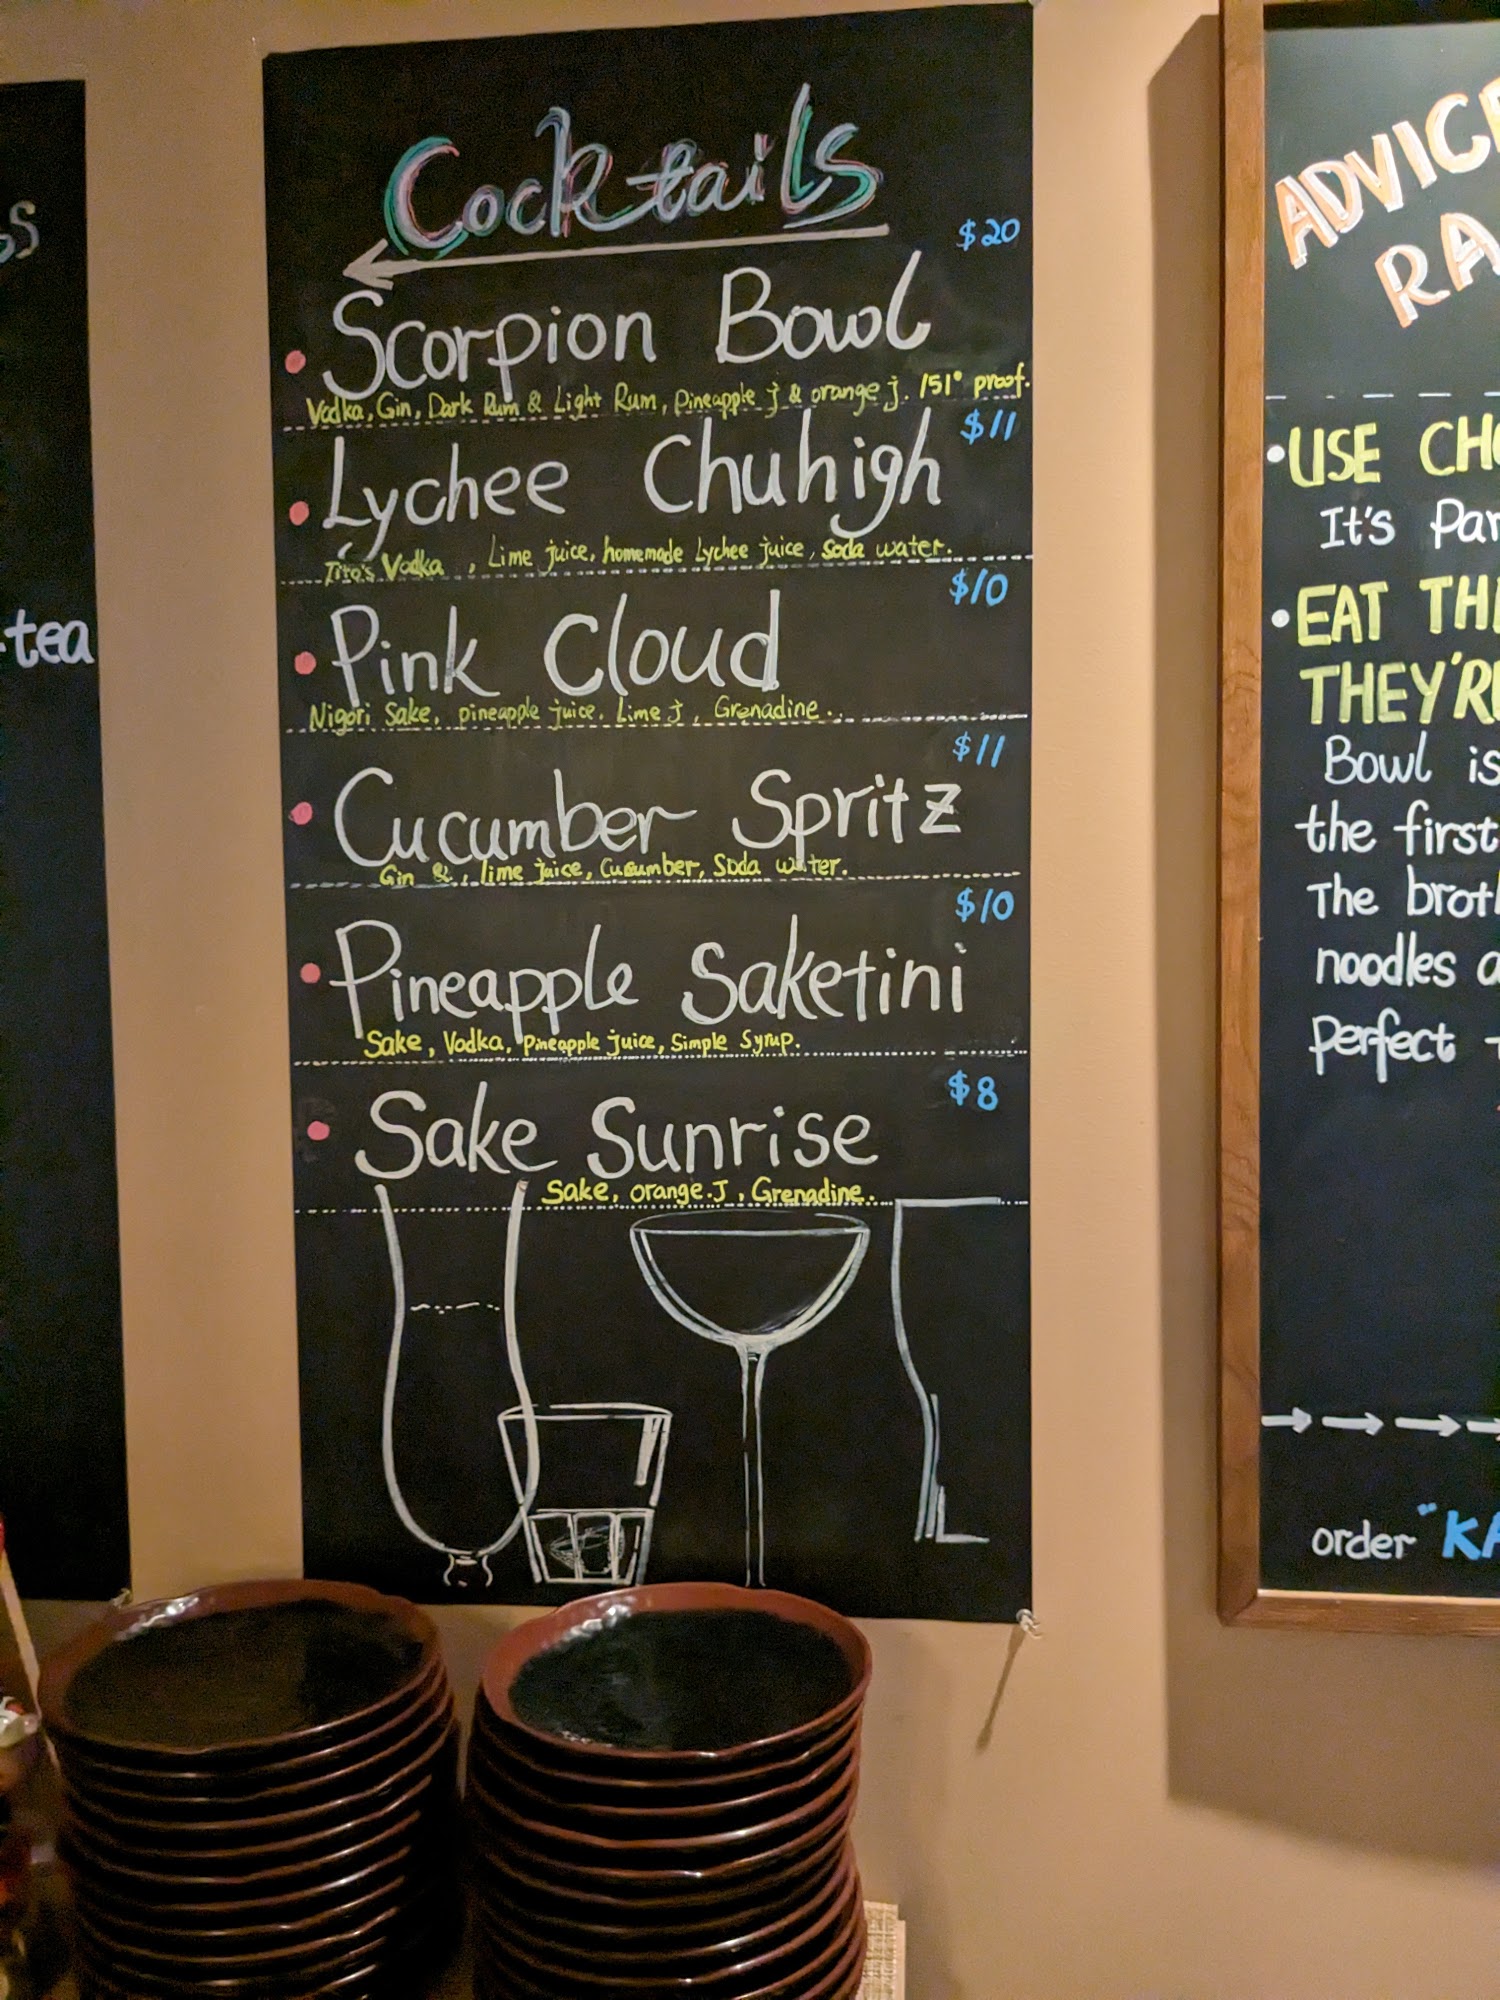 ss
tea
Cocktails
$20
Scorpion Bowl
Vodka, Gin, Dark Rum & Light Rum, Pineapple j & orange j. 151° proof.
$11
Lychee Chuhigh
Tito's Vodka , Lime juice, homemade Lychee juice, Soda water.
$10
Pink Cloud
Nigori Sake, pineapple juice, Lime j, Grenadine.
$11
Cucumber Spritz
Gin & , lime juice, Cucumber, Soda water.
$10
Pineapple Saketini
Sake, Vodka, Pineapple juice, Simple Syrup.
$8
Sake Sunrise
Sake, orange.J, Grenadine.
ADVICE
RA
•USE CHO
It's Par
•EAT THE
THEY'RE
Bowl is
the first
The brot
noodles a
Perfect
order "KA